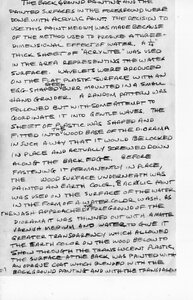 THE BACKGROUND PAINTING AND THE
PAINTED SURFACES IN THE FOREGROUND WERE
DONE WITH ACRYLIC PAINT. THE DECISION TO
USE THIS PAINT MEDIUM WAS MADE BECAUSE
OF THE METHOD USED TO PRODUCE A THREE-
DIMENSIONAL EFFECT OF WATER. A ¼"
THICK SHEET OF "ACRYLITE" WAS USED
IN THE AREA REPRESENTING THE WATER
SURFACE. WAVELETS WERE PRODUCED
ON THE FLAT PLASTIC SURFACE WITH AN
EGG SHAPED MOUNTED IN A SMALL
HAND GRINDER. A RANDOM PATTERN WAS
FOLLOWED BUT WITH SOME ATTEMPT TO
COORDINATE IT INTO GENTLE WAVES. THE
SHEET OF PLASTIC WAS SHAPED AND
FITTED INTO WOOD BASE OF THE DIORAMA
IN SUCH A WAY THAT IT WOULD BE LOCKED
IN PLACE AND ACTUALLY SCREWED DOWN
ALONG THE BACK EDGE. BEFORE
FASTENING IT PERMANENTLY IN PLACE,
THE WOOD SURFACE UNDERNEATH WAS
PAINTED AN EARTH COLOR, & ACRYLIC PAINT
WAS USED ON THE SURFACE OF THE WATER
IN THE FORM OF A WATER COLOR WASH. AS
THE WASH APPROACHED THE FOREGROUND OF THE
DIORAMA IT WAS THINNED OUT WITH A MATTE
VARNISH MEDIUM AND WATER TO GIVE A
GREATER TRANSPARENCY WHICH ALLOWED
THE EARTH COLOR ON THE WOOD BELOW TO
SHOW THROUGH THE TRANSLUCENT PLASTIC.
THE SURFACE AT THE BACK WAS PAINTED WITH
AN OPAQUE COAT WHICH BLENDED WITH THE
BACKGROUND PAINTING AND WITH THE TRANSPARENT